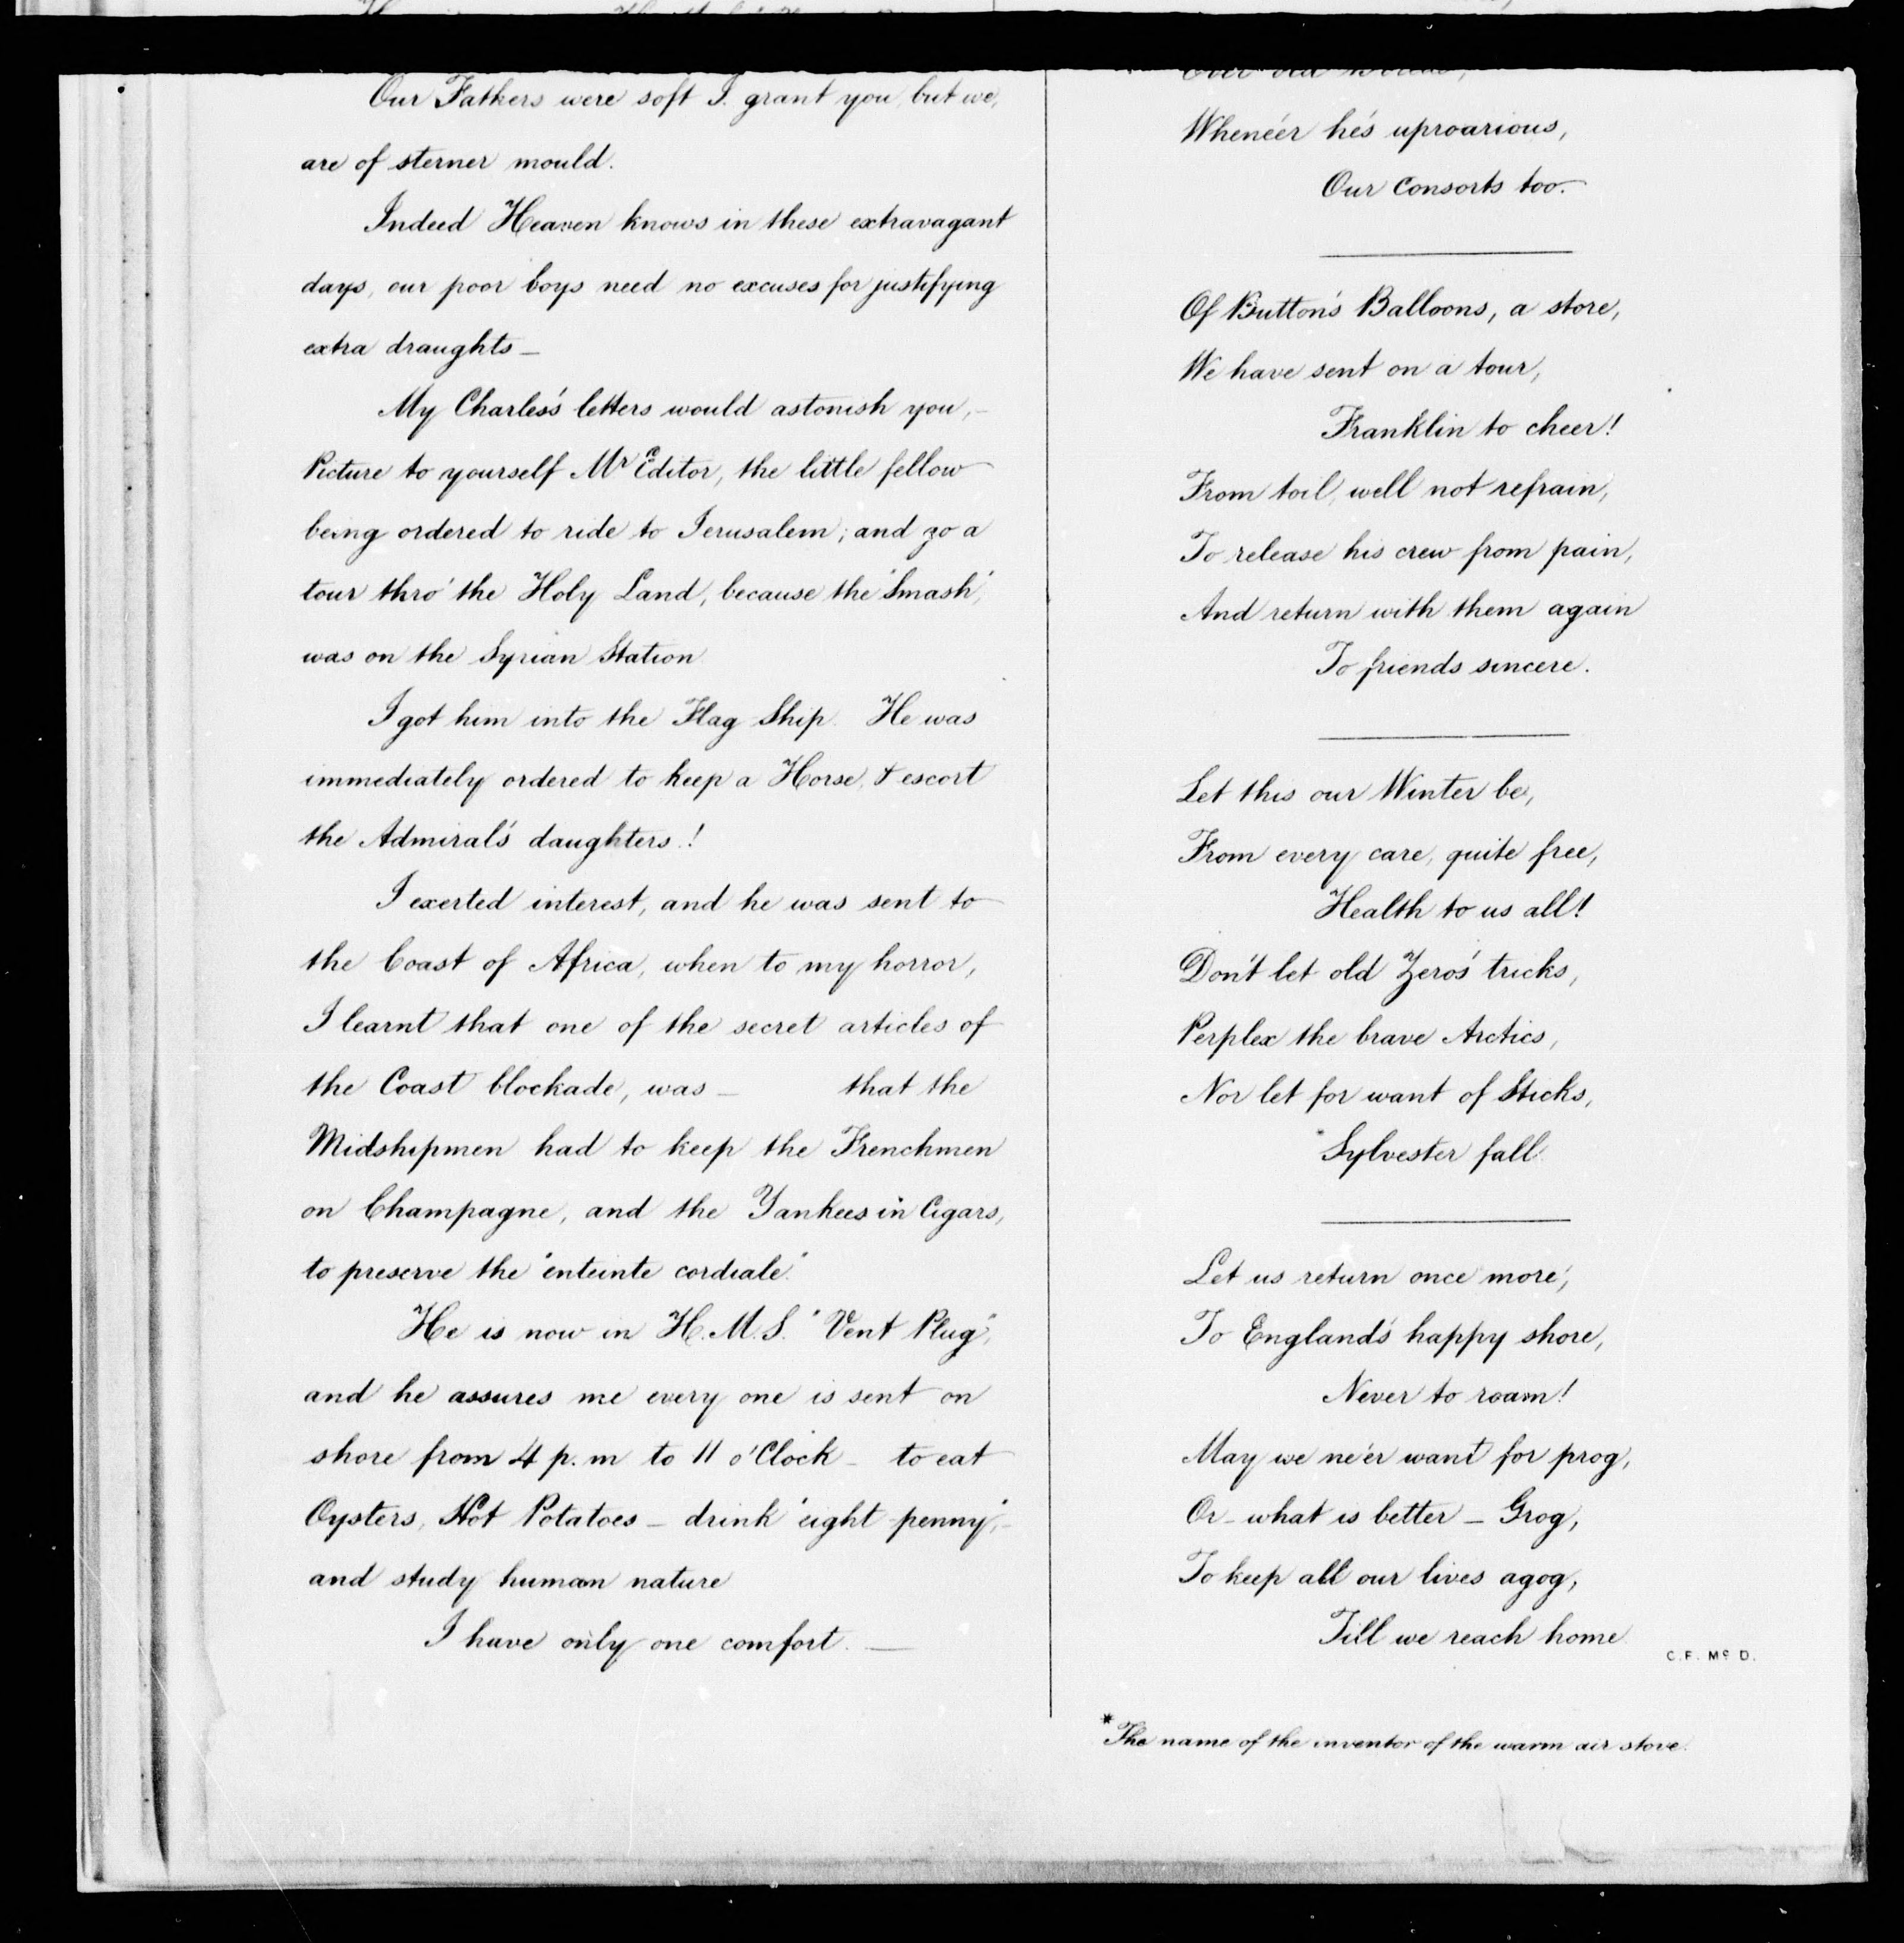 Our Fathers were soft I. grant you, but we,
are of sterner mould.
Indeed Heaven knows in these extravagant
days, our poor boys need no excuses for justifying
extra draughts –
My Charles's letters would astonish you, –
Picture to yourself Mr Editor, the little fellow
being ordered to ride to Jerusalem; and go a
tour thro' the Holy Land, because the "Smash",
was on the Syrian Station
I got him into the Flag Ship. He was
immediately ordered to keep a Horse, & escort
the Admiral's daughters.!
I exerted interest, and he was sent to
the Coast of Africa, when to my horror,
I learnt that one of the secret articles of
the Coast blockade, was – that the
Midshipmen had to keep the Frenchmen
on Champagne, and the Yankees in Cigars,
to preserve the "enteinte cordiale."
He is now in H.M.S. "Vent Plug",
and he assures me every one is sent on
shore from 4 p.m to 11 o'Clock – to eat
Oysters, Hot Potatoes – drink "eight-penny", –
and study human nature
I have only one comfort. —
Whene'er he's uproarious,
Our Consorts too.
Of Button's Balloons, a store,
We have sent on a tour,
Franklin to cheer!
From toil, well not refrain,
To release his crew from pain,
And return with them again
To friends sincere.
Let this our Winter be,
From every care, quite free,
Health to us all!
Don't let old Zero's tricks,
Perplex the brave Arctics,
Nor let for want of Sticks,
*Sylvester fall.
Let us return once more,
To England's happy shore,
Never to roam!
May we ne'er want for prog,
Or – what is better – Grog,
To keep all our lives agog,
Till we reach home
C. F. Mc D.
*The name of the inventor of the warm air stove.